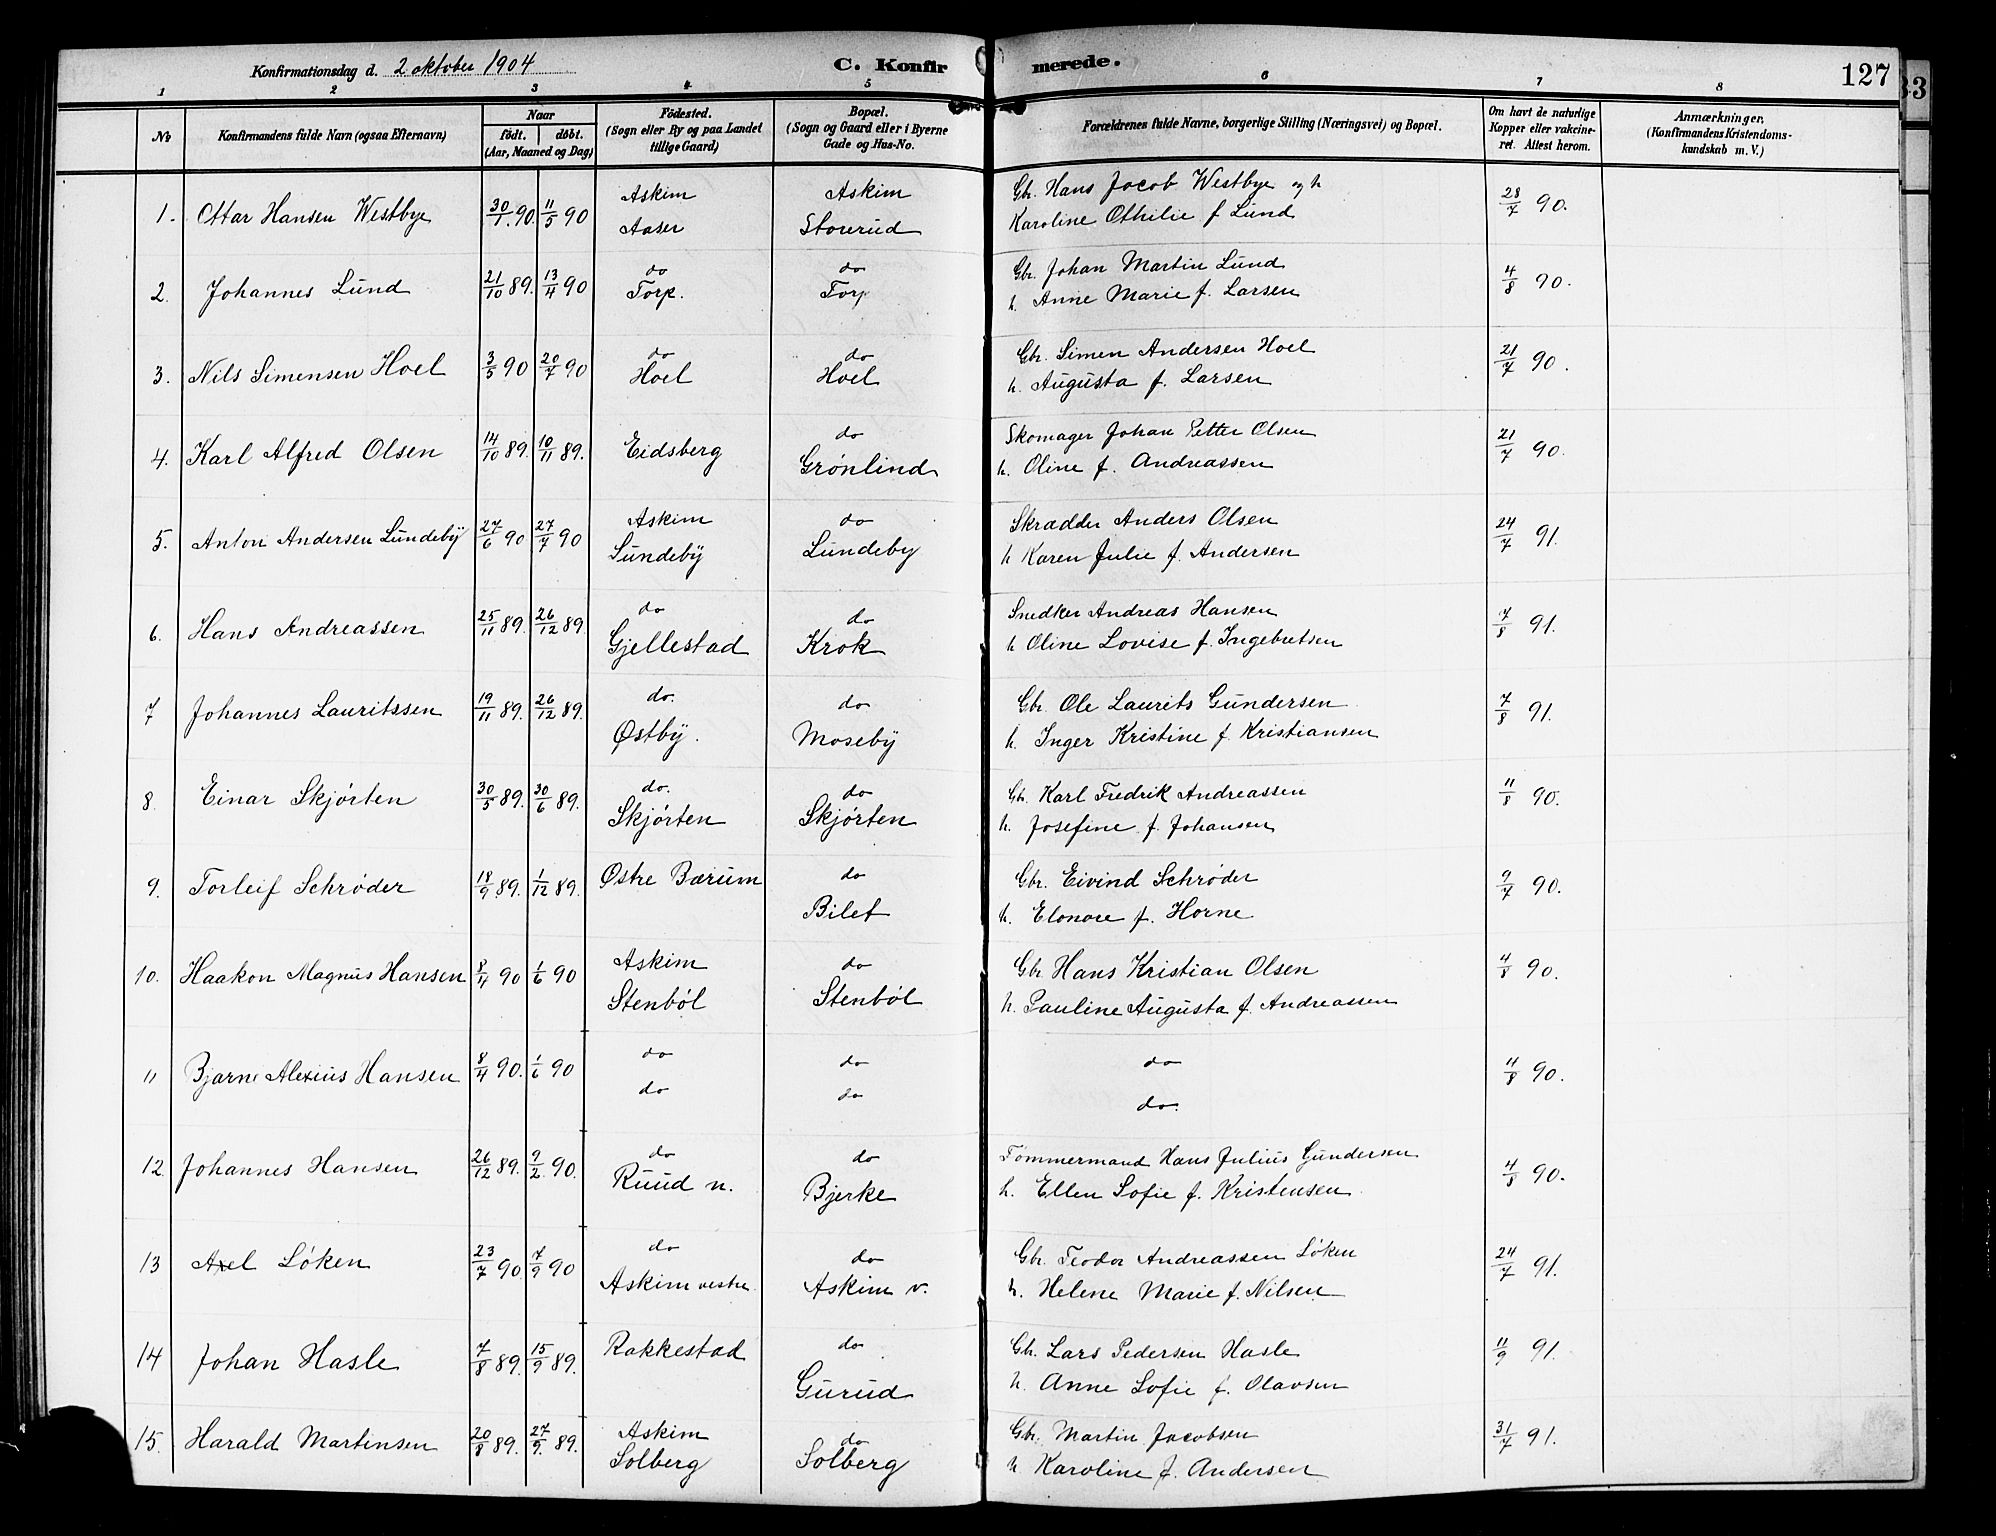 Konfirmationsdag d. 2 oktober 1904 C. Konfirmerede. 127
1 2 3 4 5 6 7 8
No Konfirmandens fulde Navn (ogsaa Efternavn)
Naar
født. døbt.
(Aar, Maaned og Dag)
Fødested.
(Sogn eller By og paa Landet
tillige Gaard)
Bopæl.
(Sogn og Gaard eller i Byerne
Gade og Hus-No.
Forældrenes fulde Navne, borgerlige Stilling (Næringsvei) og Bopæl.
Om havt de naturlige
Kopper eller vakcine-
ret. Attest herom.
Anmærkninger.
(Konfirmandens Kristendoms-
kundskab m. V.)
1. Ottar Hansen Westbye 30/1 90. 11/5 90 Askim Askim Gbr. Hans Jacob Westbye og h 28/7 90.
Aaser Storerud Karoline Othilie f Lund
2. Johannes Lund 21/10 89. 13/4 90 do do Gbr. Johan Martin Lund 4/8 90.
Torp. Torp h. Anne Marie f. Larsen
3. Nils Simensen Hoel 3/5 90 20/7 90 do do Gbr. Simen Andersen Hoel 21/7 90.
Hoel Hoel h. Augusta f. Larsen
4. Karl Alfred Olsen 14/10 89. 10/11 89. Eidsberg do Skomager Johan Petter Olsen 21/7 90.
Grønlund h. Oline f. Andreassen
5. Anton Andersen Lundeby 27/6 90 27/7 90 Askim do Skrædder Anders Olsen 24/7 91.
Lundeby Lundeby h Karen Julie f. Andersen
6. Hans Andreassen 25/11 89. 26/12 89. do do Snedker Andreas Hansen 7/8 91.
Gjellestad Krok h Oline Lovise f. Ingebretsen
7 Johannes Lauritssen 19/11 89. 26/12 89. do. do Gbr. Ole Laurits Gundersen 7/8 91.
Østby. Moseby h. Inger Kristine f. Kristiansen
8. Einar Skjørten 30/5 89. 30/6 89. do. do Gbr. Karl Fredrik Andreassen 11/8 90.
Skjørten Skjørten h. Josefine f. Johansen
9. Torleif Schrøder 18/9 89. 1/12 89. Østre Bærum do Gbr. Eivind Schrøder 9/7 90.
Bilet h. Elonore f. Horne
10. Haakon Magnus Hansen 8/4 90 1/6 90 Askim do Gbr Hans Kristian Olsen 4/8 90.
Stenbøl Stenbøl h. Pauline Augusta f. Andreassen
11 Bjarne Alexius Hansen 8/4 90. 1/6 90 do do do 4/8 90.
do do do.
12. Johannes Hansen 26/12 89. 9/2 90. do do Tømmermand Hans Julius Gundersen 4/8 90.
Ruud n. Bjerke h. Ellen Sofie f. Kristensen
13 Axel Løken 23/7 90. 7/9 90 do do Gbr. Teodor Andreassen Løken 24/7 91.
Askim vestre Askim v. h. Helene Marie f. Nilsen
14 Johan Hasle 7/8 89. 15/9 89. Rakkestad do Gbr. Lars Pedersen Hasle 11/9 91.
Gurud h. Anne Sofie f. Olavsen
15. Harald Martinsen 20/8 89. 27/9. 89. Askim do Gbr. Martin Jacobsen 31/7 91.
Solberg Solberg h Karoline f. Andersen